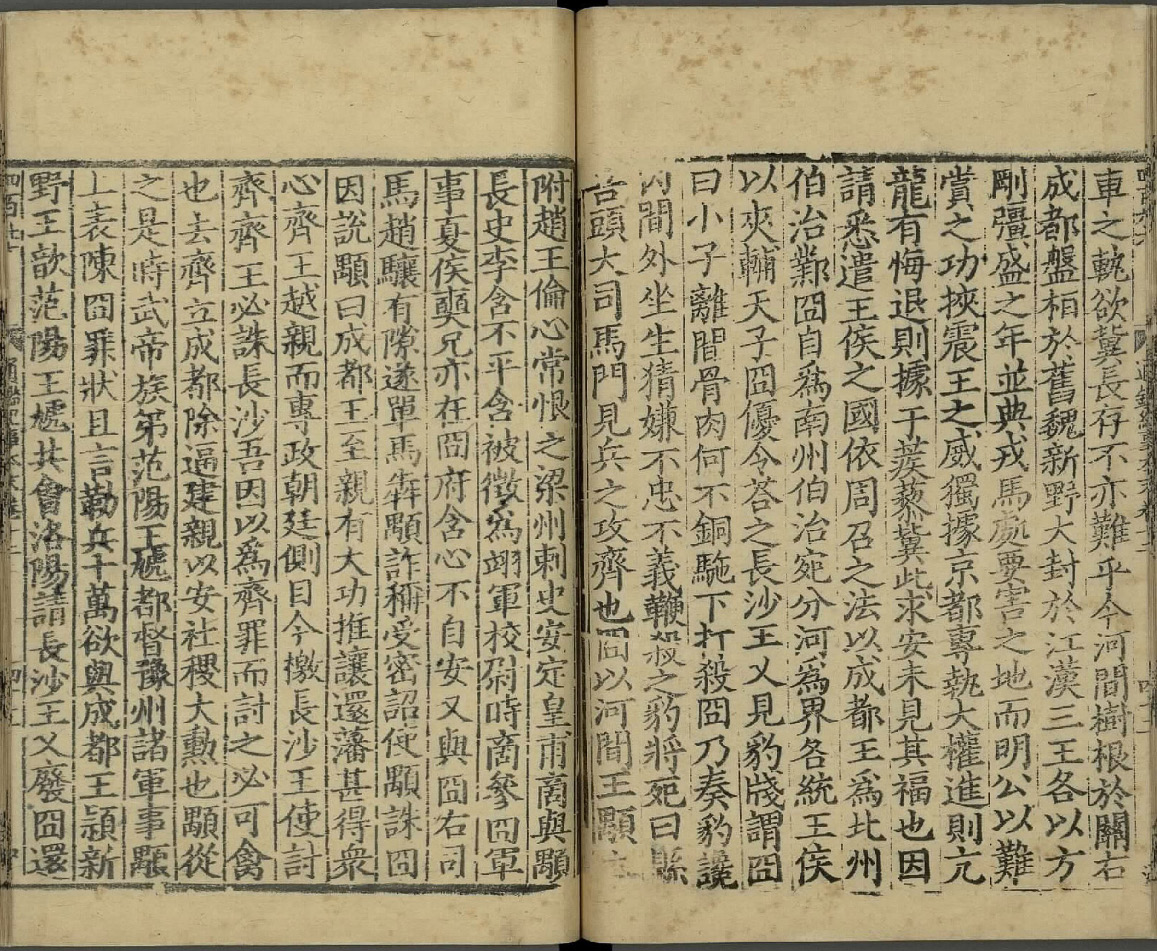 車之軌欲冀長存不亦難乎今河間樹根於關右
成都盤桓於舊魏新野大封於江漢三王各以方
剛彊盛之年並典戎馬處要害之地而明公以難
賞之功挾震王之威獨據京都專執大權進則亢
龍有悔退則據于蒺蔾冀此求安未見其福也因
請悉遣王侯之國依周召之法以成都王爲北州
伯治鄴冏自爲南州伯治宛分河爲界各統王侯
以夾輔天子冏優令荅之長沙王乂見豹牋謂冏
曰小子離間骨肉何不銅駞下打殺冏乃奏豹讒
內間外坐生猜嫌不忠不義鞭殺之豹將死曰縣
吾頭大司馬門見兵之攻齊也冏以河間王顒
附趙王倫心常恨之梁州刺史安定皇甫商與顒
長史李含不平含被徵爲翊軍校尉時商參冏軍
事夏侯奭兄亦在冏府含心不自安又與冏右司
馬趙驤有隙遂單馬犇顒詐稱受密詔使顒誅冏
因說顒曰成都王至親有大功推讓還藩甚得衆
心齊王越親而專政朝廷側目今檄長沙王使討
齊齊王必誅長沙吾因以爲齊罪而討之必可禽
也去齊立成都除逼建親以安社稷大勳也顒從
之是時武帝族弟范陽王虓都督豫州諸軍事顒
上表陳冏罪狀且言勒兵十萬欲與成都王穎新
野王歆范陽王虓共會洛陽請長沙王乂廢冏還